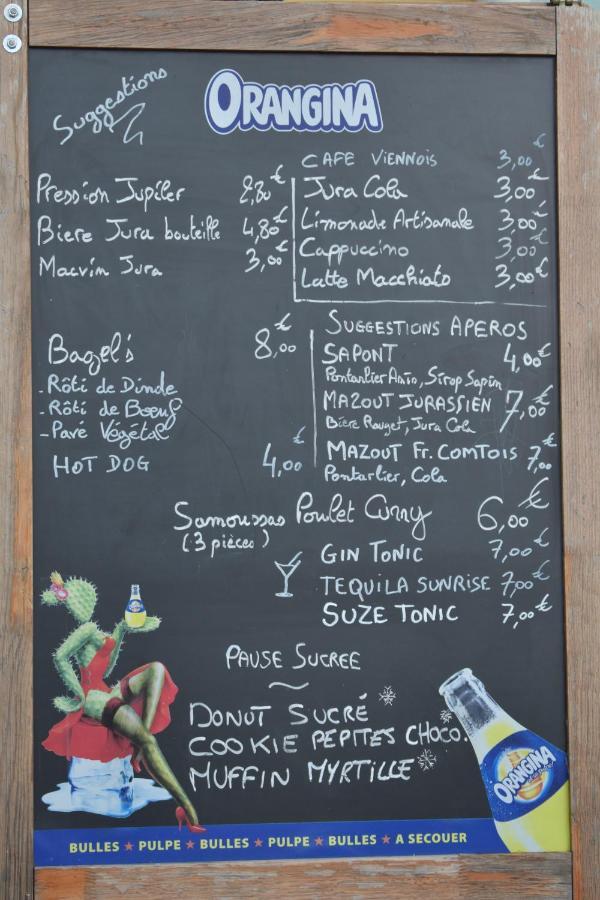 Suggestions
ORANGINA
CAFE VIENNOIS 3,00€
Pression Jupiler 2,80€
Jura Cola 3,00€
Biere Jura bouteille 4,80€
Limonade Artisanale 3,00€
Macvin Jura 3,00€
Cappuccino 3,00€
Latte Macchiato 3,00€
Bagel's 8,00€
- Rôti de Dinde
- Rôti de Boeuf
- Pavé Végétal
HOT DOG 4,00€
SUGGESTIONS APEROS
SAPONT 4,00€
Pontarlier Anis, Sirop Sapin
MAZOUT JURASSIEN 7,00€
Biere Rouget, Jura Cola
MAZOUT Fr. COMTOIS 7,00€
Pontarlier, Cola
Samoussas Poulet Curry 6,00€
(3 pièces)
GIN TONIC 7,00€
TEQUILA SUNRISE 7,00€
SUZE TONIC 7,00€
PAUSE SUCREE
~
DONUT SUCRÉ
COOKIE PEPITES CHOCO.
MUFFIN MYRTILLE
ORANGINA
BULLES ★ PULPE ★ BULLES ★ PULPE ★ BULLES ★ A SECOUER